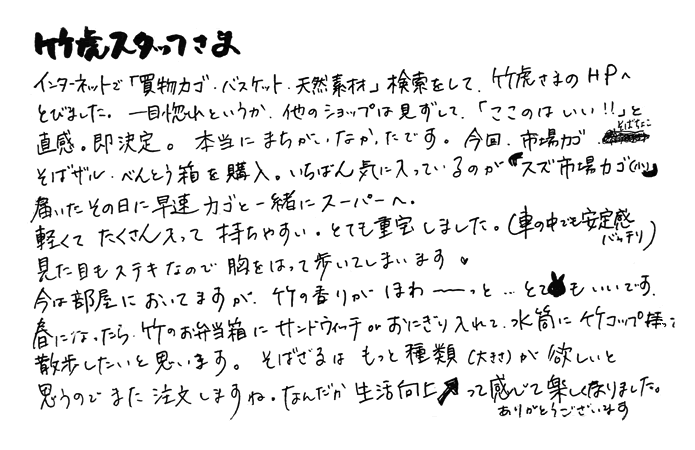 竹虎スタッフさま
インターネットで「買物カゴ・バスケット・天然素材」検索をして、竹虎さまのHPへ
とびました。一目惚れというか、他のショップは見ずして、「ここのはいい!!」と
直感。即決定。本当にまちがいなかったです。今回、市場カゴ・そばちょこ
そばザル・べんとう箱を購入。いちばん気に入っているのが『スズ市場カゴ(小)』
届いたその日に早速カゴと一緒にスーパーへ。
軽くてたくさん入って持ちやすい。とても重宝しました。(車の中でも安定感バッチリ)
見た目もステキなので胸をはって歩いてしまいます
今は部屋においてますが、竹の香りがほわ〜〜っと…とてもいいです。
春になったら、竹のお弁当箱にサンドウィッチorおにぎり入れて、水筒に竹コップ持って
散歩したいと思います。そばざるはもっと種類(大きさ)が欲しいと
思うのでまた注文しますね。なんだか生活向上↗って感じで楽しくなりました。
ありがとうございます